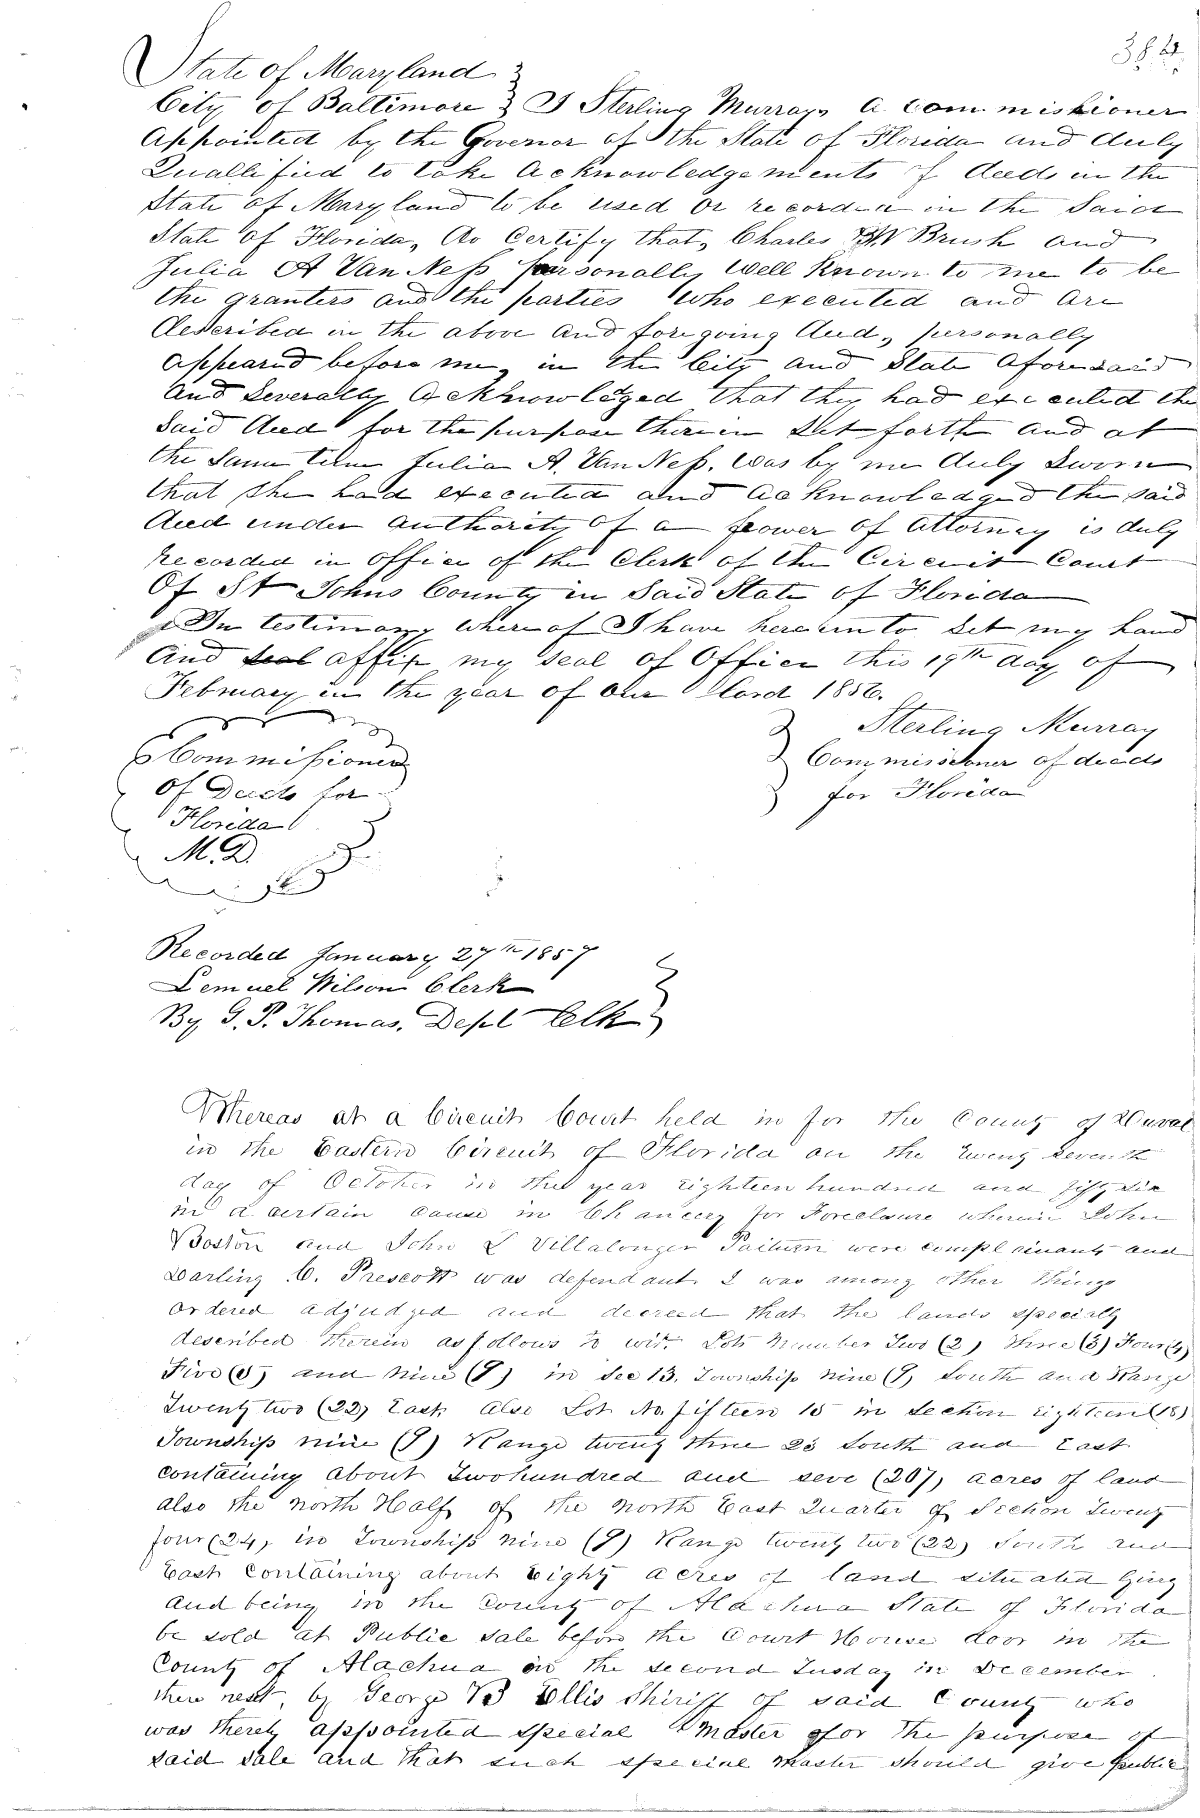 384
State of Maryland
City of Baltimore I Sterling Murray, a commissioner
appointed by the Govenor of the State of Florida and duly
Quallified to take acknowledgements of deeds in the
State of Maryland to be used or recorded in the Said
State of Florida, do Certify that, Charles Brush and
Julia A Van Ness personally well Known to me to be
the granters and the parties who executed and are
described in the above and foregoing deed, personally
appeared before me, in the City and State aforesaid
and Severally acknowledged that they had executed the
Said deed for the purpose therein set forth and at
the Same time Julia A. Van Ness. was by me duly Sworn
that She had executed and acknowledged the said
deed under authority of a power of attorney is duly
recorded in office of the Clerk of the Circuit Court
Of St Johns County in Said State of Florida
In testimony whereof I have hereunto set my hand
and seal affix my seal of Office this 19th day of
February in the year of our Lord 1856.
Sterling Murray
Commissioner of deeds
for Florida
Commissioner
of Deeds for
Florida
M.D.
Recorded January 27th 1857
Lemuel Wilson Clerk
By G. P. Thomas, Dept Clk
Whereas at a Circuit Court held in for the County of Duval
in the Eastern Circuit of Florida on the twenty seventh
day of October in the year eighteen hundred and fifty six
in a certain cause in Chancery for Foreclosure wherein John
Boston and John L Villalonger were complainants and
Darling C. Prescott was defendant I was among other things
ordered adjudged and decreed that the lands specially
described therein as follows to wit. Lots Number Two (2) three (3) Four (4)
Five (5) and nine (9) in Sec 13. Township nine (9) South and Range
Twenty two (22) East also Lot No. fifteen 15 in Section eighteen (18)
Township nine (9) Range twenty three 23 South and East
containing about Twohundred and seve (207) acres of land
also the north Half of the north East Quarter of Section Twenty
four (24) in Township nine (9) Range twenty two (22) South and
East Containing about Eighty acres of land situated lying
and being in the County of Alachua State of Florida
be sold at Public sale before the Court House door in the
County of Alachua on the second Tusday in December
then next, by George B Ellis Shiriff of said County who
was therety appointed special Master for the purpose of
said sale and that such special master should give public